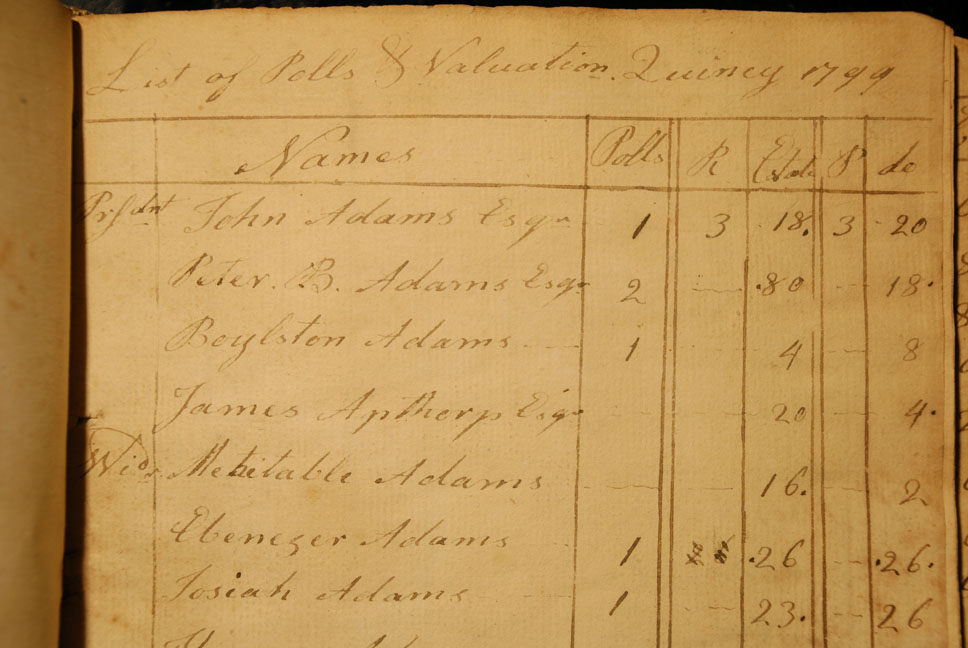 List of Polls & Valuation. Quincy 1799
Names Polls R Estate P do
Prsdnt John Adams Esqr 1 3 18. 3 20
Peter. B. Adams Esqr 2 80 18.
Boylston Adams 1 4 8
James Apthorp Esqr 20 4.
Widw Mehitable Adams 16. 2
Ebenezer Adams 1 26 26.
Josiah Adams 1 23. 26